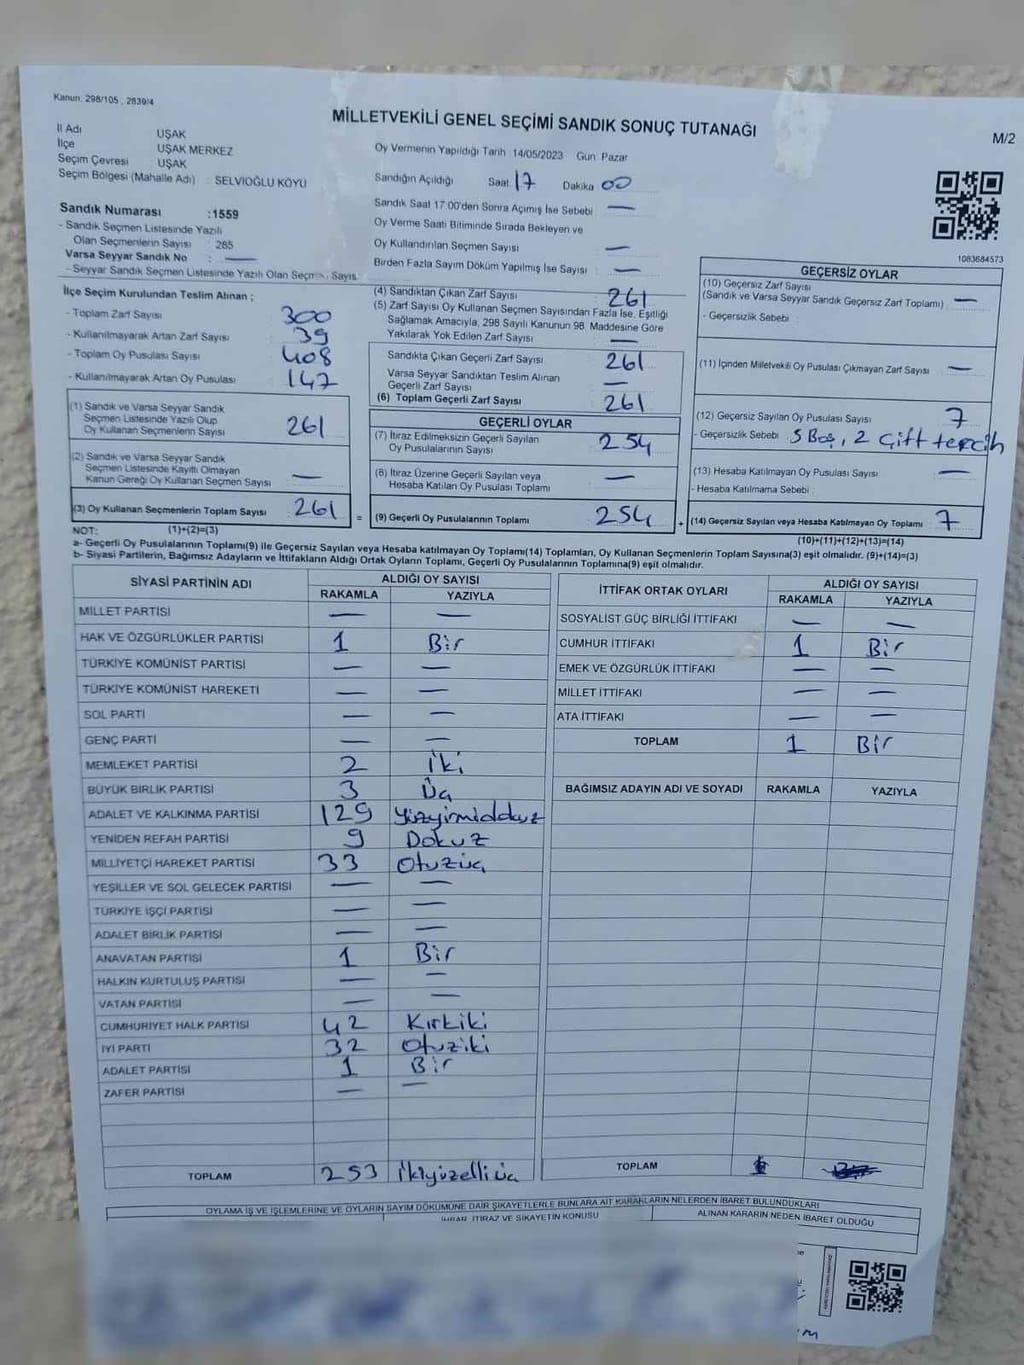 Kanun: 298/105 , 2839/4
MİLLETVEKİLİ GENEL SEÇİMİ SANDIK SONUÇ TUTANAĞI
M/2
İl Adı UŞAK
İlçe UŞAK MERKEZ
Seçim Çevresi UŞAK
Seçim Bölgesi (Mahalle Adı) : SELVİOĞLU KÖYÜ
Oy Vermenin Yapıldığı Tarih :14/05/2023 Gün: Pazar
Sandığın Açıldığı Saat: 17 Dakika 00
Sandık Saat 17:00'den Sonra Açımış İse Sebebi : —
Oy Verme Saati Bitiminde Sırada Bekleyen ve
Oy Kullandırılan Seçmen Sayısı —
Birden Fazla Sayım Döküm Yapılmış İse Sayısı : —
Sandık Numarası :1559
- Sandık Seçmen Listesinde Yazılı
Olan Seçmenlerin Sayısı : 285
Varsa Seyyar Sandık No : —
- Seyyar Sandık Seçmen Listesinde Yazılı Olan Seçmen Sayıs
1083684573
İlçe Seçim Kurulundan Teslim Alınan ;
- Toplam Zarf Sayısı 300
- Kullanılmayarak Artan Zarf Sayısı : 39
- Toplam Oy Pusulası Sayısı 408
- Kullanılmayarak Artan Oy Pusulası 147
(1) Sandık ve Varsa Seyyar Sandık
Seçmen Listesinde Yazılı Olup
Oy Kullanan Seçmenlerin Sayısı 261
(2) Sandık ve Varsa Seyyar Sandık
Seçmen Listesinde Kayıtlı Olmayan
Kanun Gereği Oy Kullanan Seçmen Sayısı —
(3) Oy Kullanan Seçmenlerin Toplam Sayısı 261
(1)+(2)=(3)
(4) Sandıktan Çıkan Zarf Sayısı : 261
(5) Zarf Sayısı Oy Kullanan Seçmen Sayısından Fazla İse, Eşitliği
Sağlamak Amacıyla, 298 Sayılı Kanunun 98. Maddesine Göre
Yakılarak Yok Edilen Zarf Sayısı : —
Sandıkta Çıkan Geçerli Zarf Sayısı 261
Varsa Seyyar Sandıktan Teslim Alınan
Geçerli Zarf Sayısı —
(6) Toplam Geçerli Zarf Sayısı 261
GEÇERLİ OYLAR
(7) İtiraz Edilmeksizin Geçerli Sayılan
Oy Pusulalarının Sayısı 254
(8) İtiraz Üzerine Geçerli Sayılan veya
Hesaba Katılan Oy Pusulası Toplamı —
= (9) Geçerli Oy Pusulalarının Toplamı 254 +
GEÇERSİZ OYLAR
(10) Geçersiz Zarf Sayısı
(Sandık ve Varsa Seyyar Sandık Geçersiz Zarf Toplamı) : —
- Geçersizlik Sebebi :
(11) İçinden Milletvekili Oy Pusulası Çıkmayan Zarf Sayısı : —
(12) Geçersiz Sayılan Oy Pusulası Sayısı 7
- Geçersizlik Sebebi : 5 Boş, 2 Çift tercih
(13) Hesaba Katılmayan Oy Pusulası Sayısı —
- Hesaba Katılmama Sebebi :
(14) Geçersiz Sayılan veya Hesaba Katılmayan Oy Toplamı 7
(10)+(11)+(12)+(13)=(14)
NOT:
a- Geçerli Oy Pusulalarının Toplamı(9) ile Geçersiz Sayılan veya Hesaba katılmayan Oy Toplamı(14) Toplamları, Oy Kullanan Seçmenlerin Toplam Sayısına(3) eşit olmalıdır. (9)+(14)=(3)
b- Siyasi Partilerin, Bağımsız Adayların ve İttifakların Aldığı Ortak Oyların Toplamı, Geçerli Oy Pusulalarının Toplamına(9) eşit olmalıdır.
SİYASİ PARTİNİN ADI ALDIĞI OY SAYISI
RAKAMLA YAZIYLA
MİLLET PARTİSİ — —
HAK VE ÖZGÜRLÜKLER PARTİSİ 1 Bir
TÜRKİYE KOMÜNİST PARTİSİ — —
TÜRKİYE KOMÜNİST HAREKETİ — —
SOL PARTİ — —
GENÇ PARTİ — —
MEMLEKET PARTİSİ 2 İki
BÜYÜK BİRLİK PARTİSİ 3 Üç
ADALET VE KALKINMA PARTİSİ 129 Yüzyirmidokuz
YENİDEN REFAH PARTİSİ 9 Dokuz
MİLLİYETÇİ HAREKET PARTİSİ 33 Otuzüç
YEŞİLLER VE SOL GELECEK PARTİSİ — —
TÜRKİYE İŞÇİ PARTİSİ — —
ADALET BİRLİK PARTİSİ — —
ANAVATAN PARTİSİ 1 Bir
HALKIN KURTULUŞ PARTİSİ — —
VATAN PARTİSİ — —
CUMHURİYET HALK PARTİSİ 42 Kırkiki
İYİ PARTİ 32 Otuziki
ADALET PARTİSİ 1 Bir
ZAFER PARTİSİ — —
TOPLAM 253 İkiyüzelliüç
İTTİFAK ORTAK OYLARI ALDIĞI OY SAYISI
RAKAMLA YAZIYLA
SOSYALİST GÜÇ BİRLİĞİ İTTİFAKI — —
CUMHUR İTTİFAKI 1 Bir
EMEK VE ÖZGÜRLÜK İTTİFAKI — —
MİLLET İTTİFAKI — —
ATA İTTİFAKI — —
TOPLAM 1 Bir
BAĞIMSIZ ADAYIN ADI VE SOYADI RAKAMLA YAZIYLA
TOPLAM
OYLAMA İŞ VE İŞLEMLERİNE VE OYLARIN SAYIM DÖKÜMÜNE DAİR ŞİKAYETLERLE BUNLARA AİT KARARLARIN NELERDEN İBARET BULUNDUKLARI
İHBAR, İTİRAZ VE ŞİKAYETİN KONUSU ALINAN KARARIN NEDEN İBARET OLDUĞU